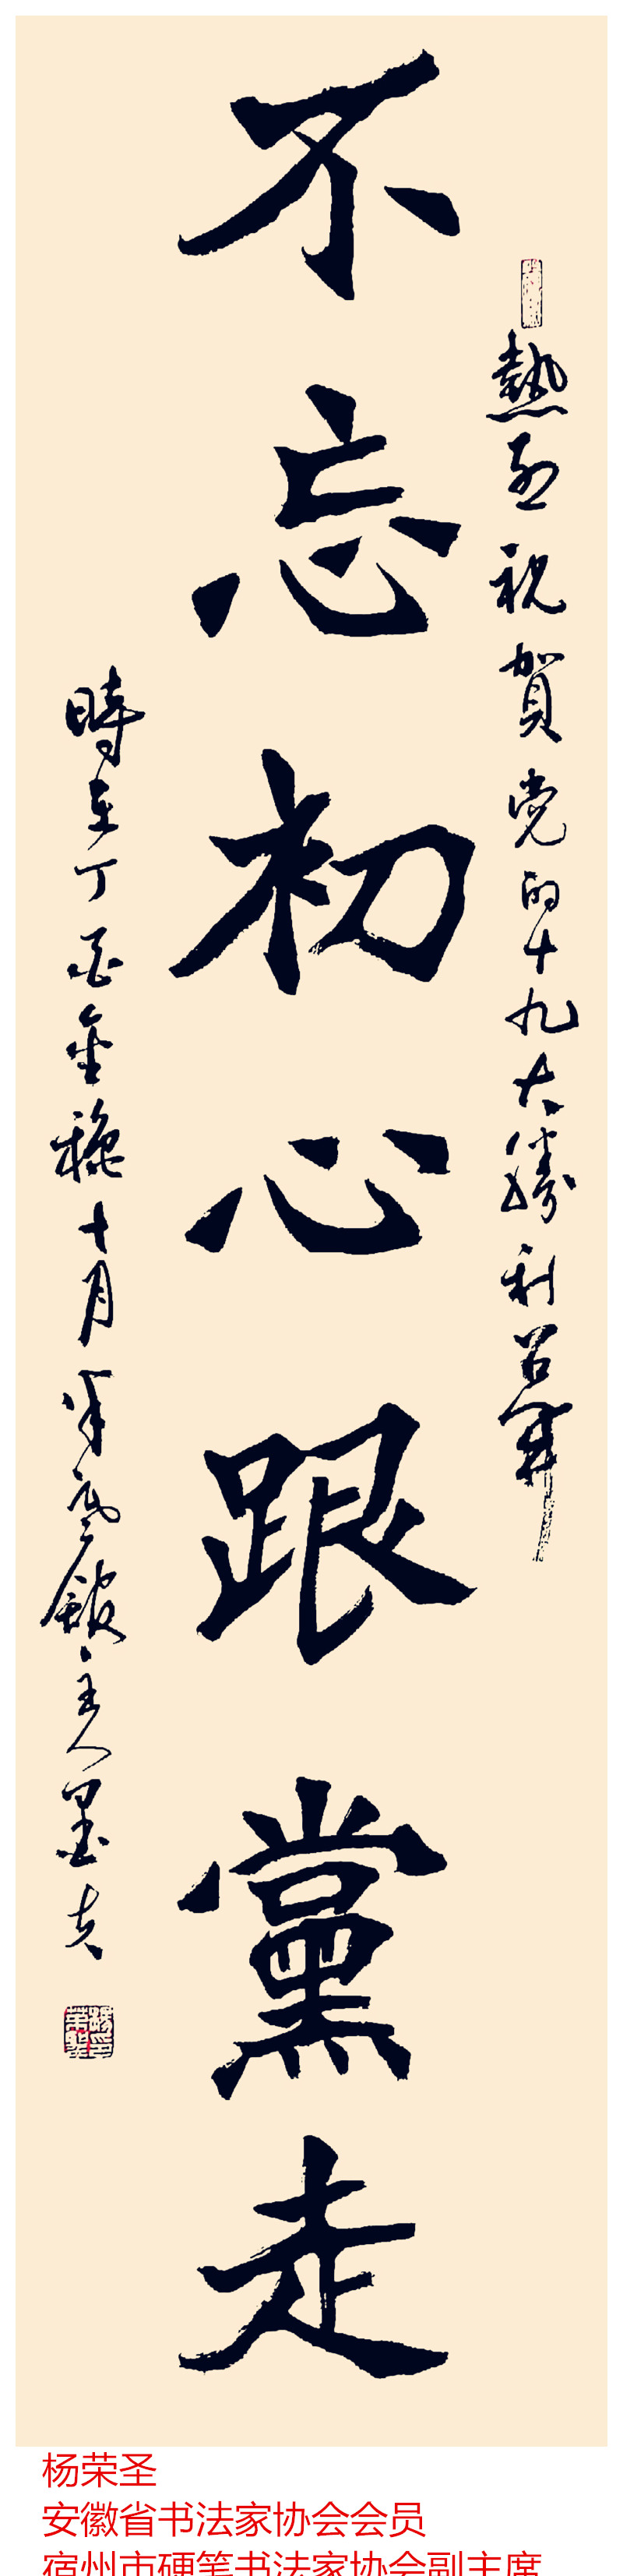 熱烈祝賀党的十九大勝利召開
不忘初心跟黨走
時在丁酉金穐十月半
館主人墨夫
杨荣圣
安徽省书法家协会会员
宿州市硬笔书法家协会副主席